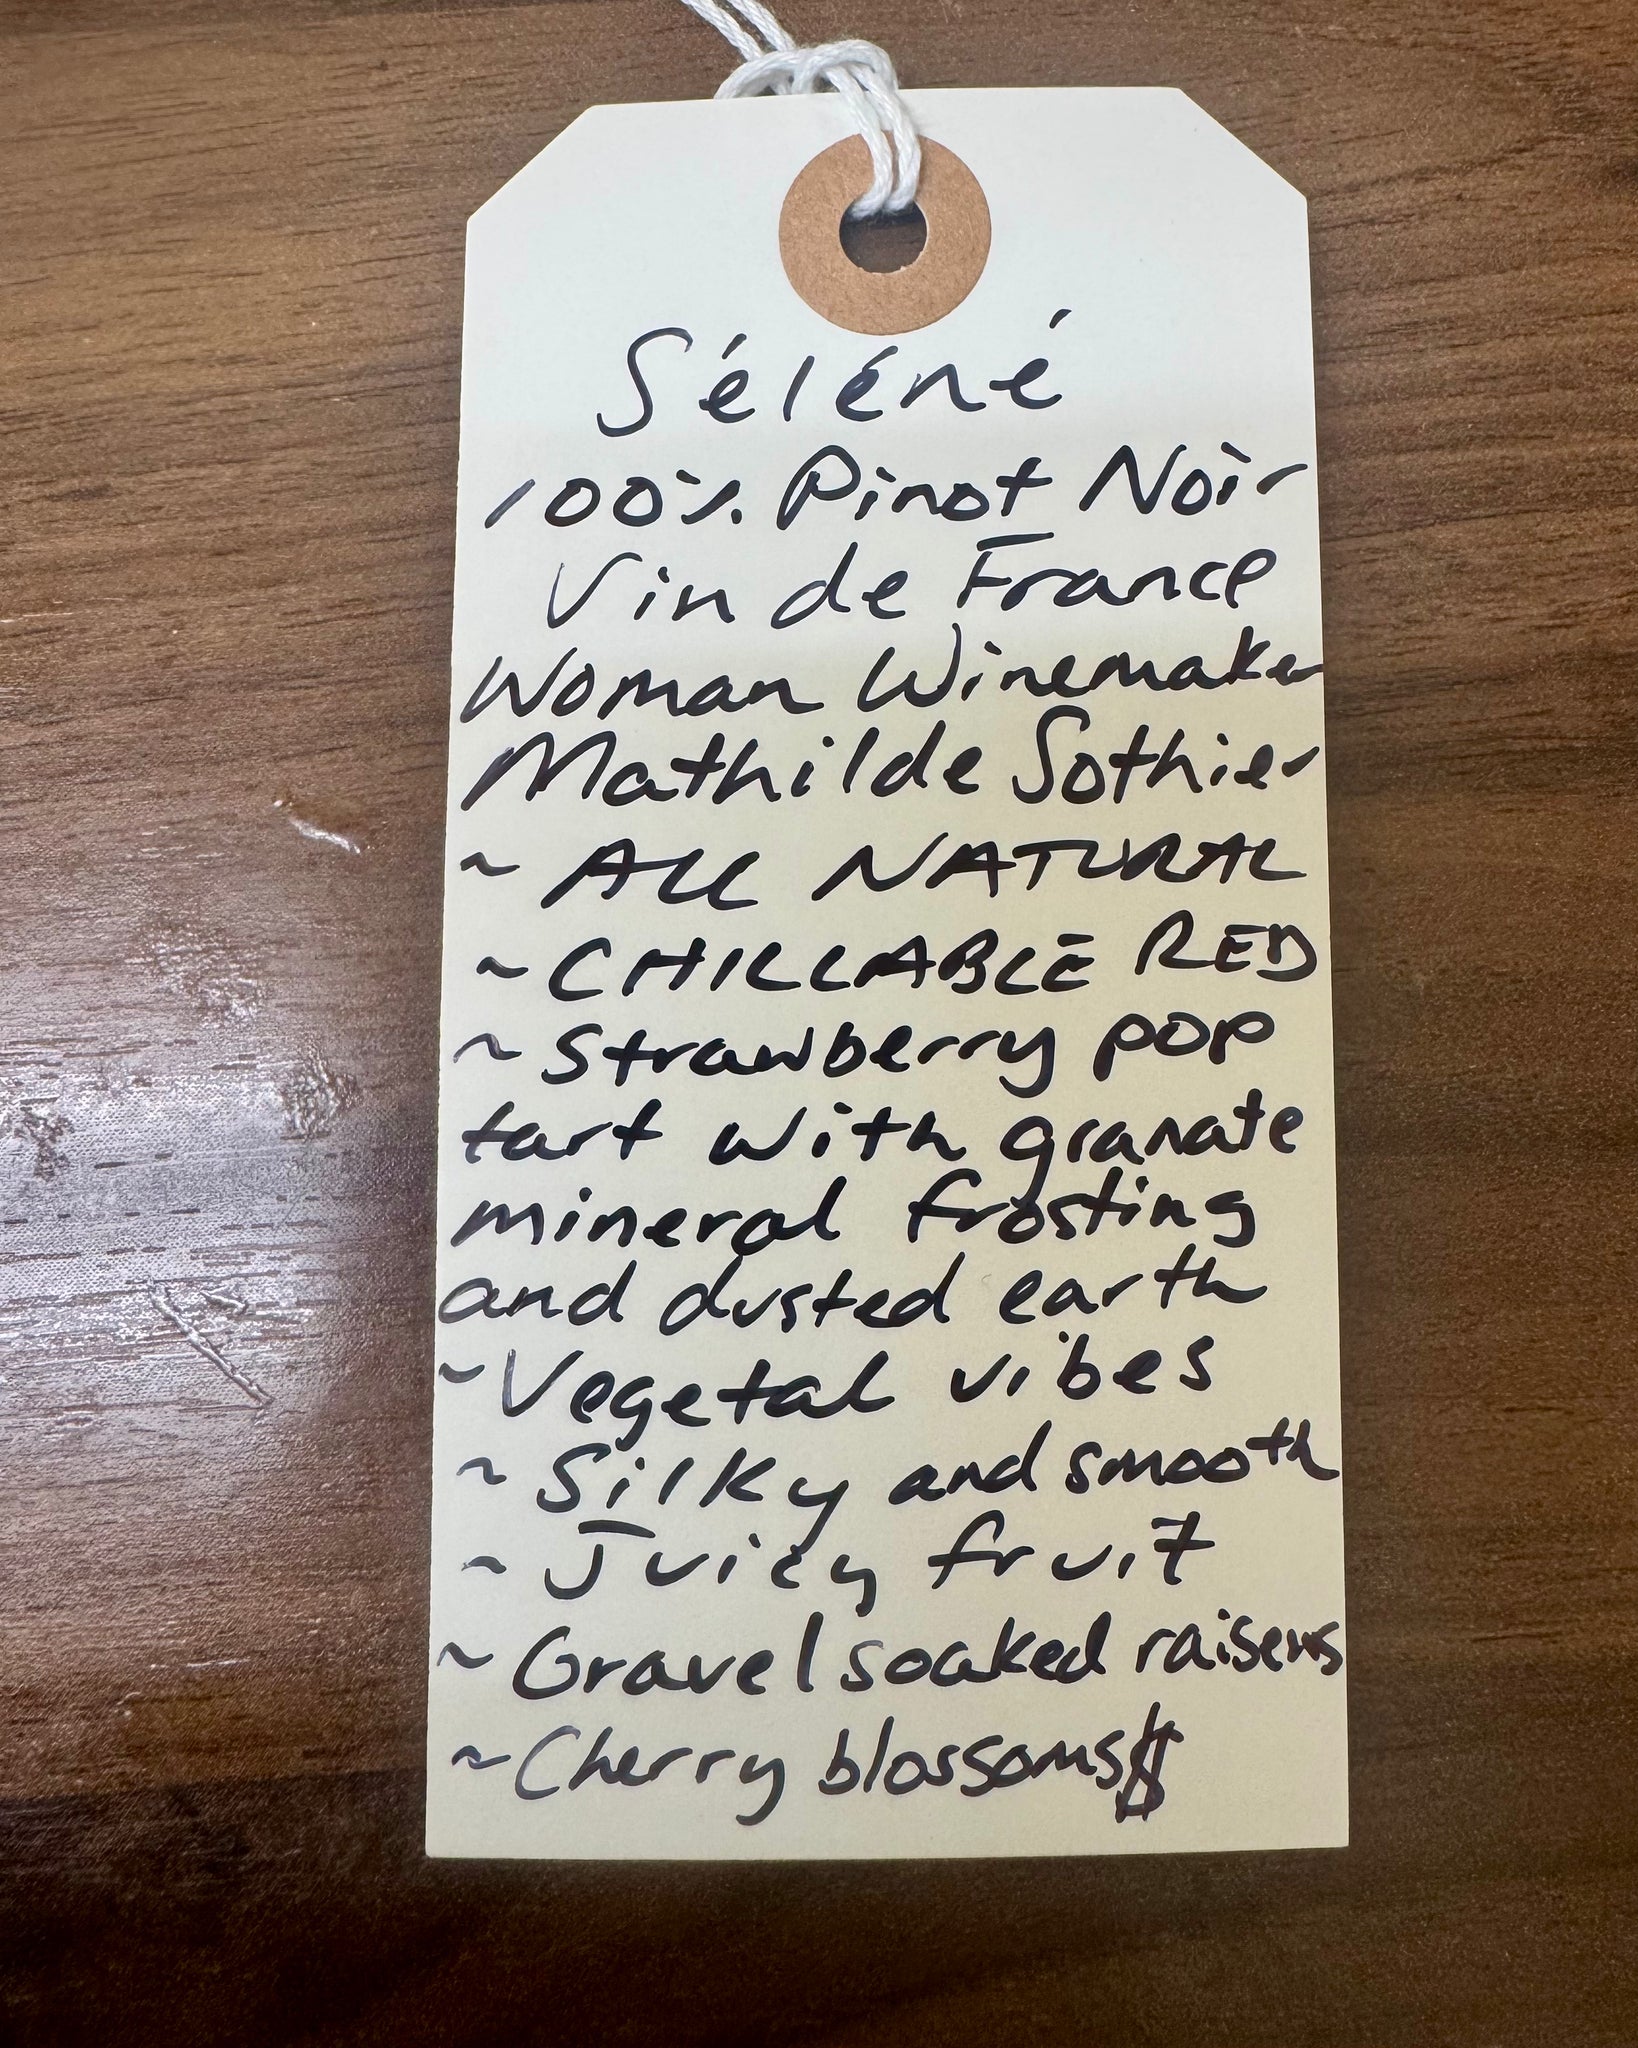 Séléné
100% Pinot Noir
Vin de France
Woman Winemaker
Mathilde Sothier
~ ALL NATURAL
~ CHILLABLE RED
~ Strawberry pop
tart with granate
mineral frosting
and dusted earth
~ Vegetal vibes
~ Silky and smooth
~ Juicy fruit
~ Gravel soaked raisens
~ Cherry blossoms $